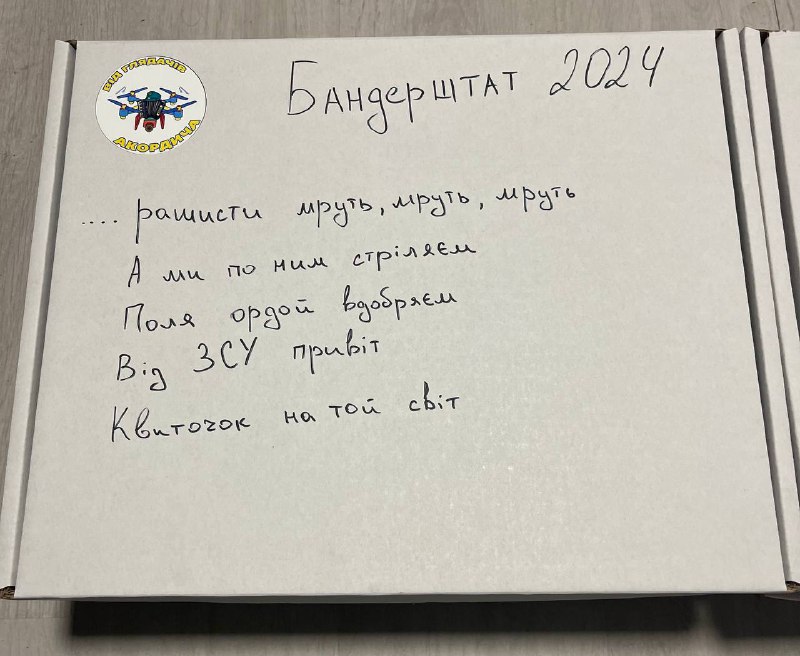 ВІД ГЛЯДАЧІВ
АКОРДИЧА
Бандерштат 2024
.... рашисти мруть, мруть, мруть
А ми по ним стріляєм
Поля ордой вдобряєм
Від ЗСУ привіт
Квиточок на той світ